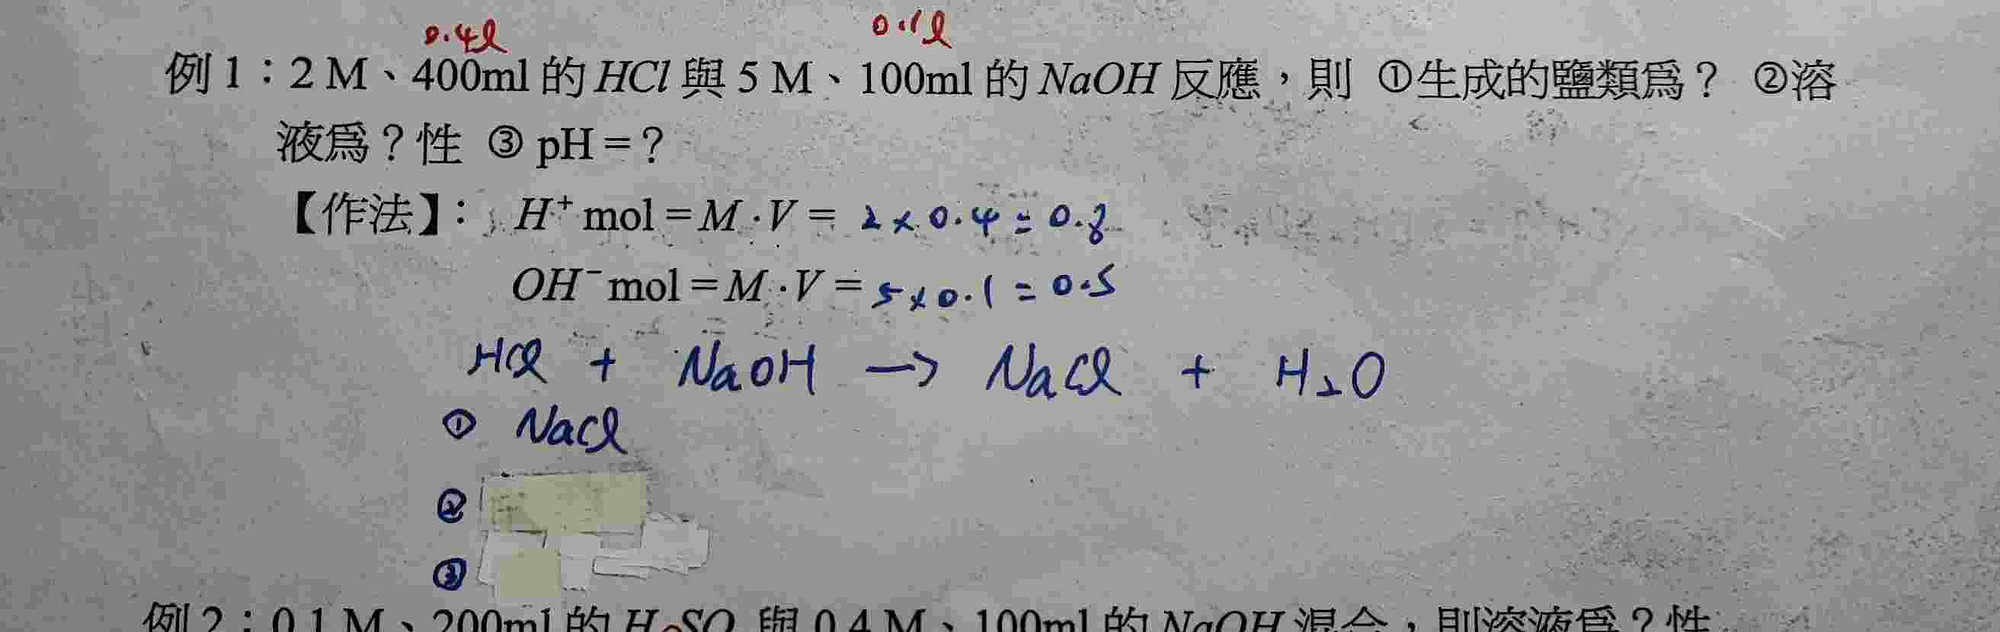 0.4l 0.1l
例1：2 M、400ml 的 HCl 與 5 M、100ml 的 NaOH 反應，則 ①生成的鹽類為？ ②溶
液為？性 ③ pH = ？
【作法】： H⁺ mol = M · V = 2 × 0.4 = 0.8
OH⁻ mol = M · V = 5 × 0.1 = 0.5
HCl + NaOH → NaCl + H₂O
① NaCl
②
③
例2：0.1 M、200ml 的 H₂SO 與 0.4 M、100ml 的 NaOH 混合，則溶液為？性